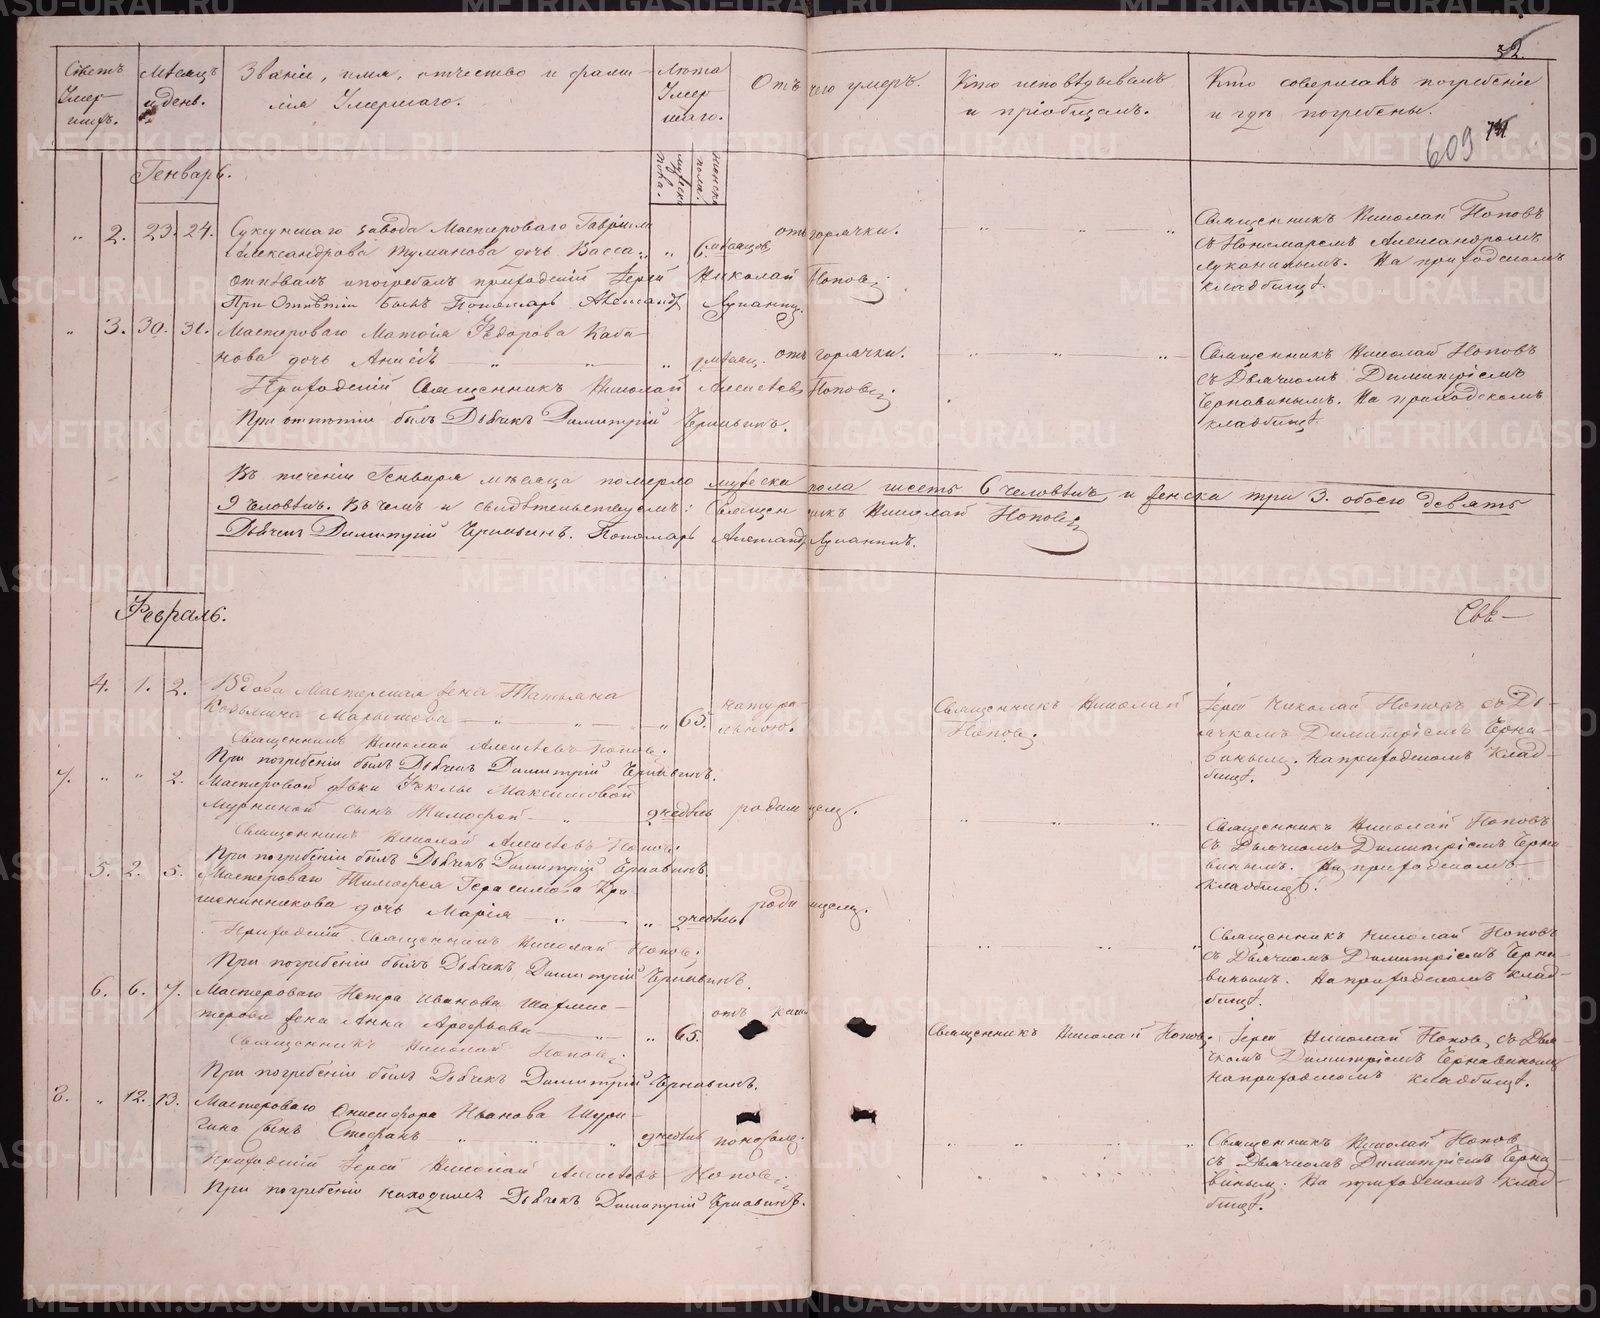 32.
Счетъ Умер-шихъ.
Мѣсяцъ и день.
Званіе, имя, отчество и фами-
лія Умершаго.
Лѣта Умер-шаго.
мужеска пола.
женска пола.
Отъ чего умеръ.
Кто исповѣдывалъ
и пріобщалъ.
Кто совершалъ погребеніе
и гдѣ погребены.
609
Генварь.
2. 23. 24. Суксунскаго завода Мастероваго Гавріила
Александрова Туманова дочь Васса 6. мѣсяцов отъ горячки.
Священникъ Николай Поповъ
съ Пономаремъ Александромъ
Луканинымъ. На приходскомъ
кладбищѣ.
Отпѣвалъ и погребалъ приходскій Іерей Николай Поповъ
При Отпѣтіи былъ Пономарь Александръ Луканинъ.
3. 30. 31. Мастероваго Матѳія Ѳедорова Каба-
нова дочь отъ горячки.
Священникъ Николай Поповъ
съ Дьячкомъ Димитріемъ
Чернавинымъ. На приходскомъ
кладбищѣ.
Приходскій Священникъ Николай Алексѣевъ Поповъ
При отпѣтіи былъ Дьячекъ Димитрій Чернавинъ.
Въ теченіи Генваря мѣсяца померло мужеска пола шесть 6 человѣкъ, и женска три 3. обоего девять
9 человѣкъ. Въ чемъ и свидѣтельствуемъ: Священникъ Николай Поповъ
Дьячекъ Димитрій Чернавинъ. Пономарь Александръ Луканинъ.
Февраль.
4. 1. 2. Вдова Мастерская жена Татьяна
Козьмина 65. натура-
льною.
Священникъ Николай
Поповъ.
Іерей Николай Поповъ съ Дь-
ячкомъ Димитріемъ Черна-
винымъ. На приходскомъ клад-
бищѣ.
Священникъ Николай Алексѣевъ Поповъ.
При погребеніи былъ Дьячекъ Димитрій Чернавинъ.
7. 2. Мастеровой дѣвки Ѳеклы Максимовой
сынъ Тимоѳей недѣль родимцемъ.
Священникъ Николай Поповъ
съ Дьячкомъ Димитріемъ Черна-
винымъ. На приходскомъ
кладбищѣ.
Священникъ Николай Алексѣевъ Поповъ
При погребеніи былъ Дьячекъ Димитрій Чернавинъ.
5. 2. 5. Мастероваго Тимоѳея Герасимова Кра-
шенинникова дочь Марія 2 недѣль родимцемъ.
Священникъ Николай Поповъ
съ Дьячкомъ Димитріемъ Черна-
винымъ. На приходскомъ клад-
бищѣ.
Приходскій Священникъ Николай Поповъ
При погребеніи былъ Дьячекъ Димитрій Чернавинъ.
6. 6. 7. Мастероваго Петра Иванова
жена Анна Арефьева 65. отъ
Священникъ Николай Поповъ.
Іерей Николай Поповъ, съ Дья-
чкомъ Димитріемъ Чернавинымъ
на приходскомъ кладбищѣ.
Священникъ Николай Поповъ
При погребеніи былъ Дьячекъ Димитрій Чернавинъ.
8. 12. 13. Мастероваго Онисифора Иванова
сынъ Стефанъ недѣль поносомъ.
Священникъ Николай Поповъ
съ Дьячкомъ Димитріемъ Черна-
винымъ. На приходскомъ клад-
бищѣ.
Приходскій Іерей Николай Алексѣевъ Поповъ
При погребеніи находился Дьячекъ Димитрій Чернавинъ.
METRIKI.GASO-URAL.RU